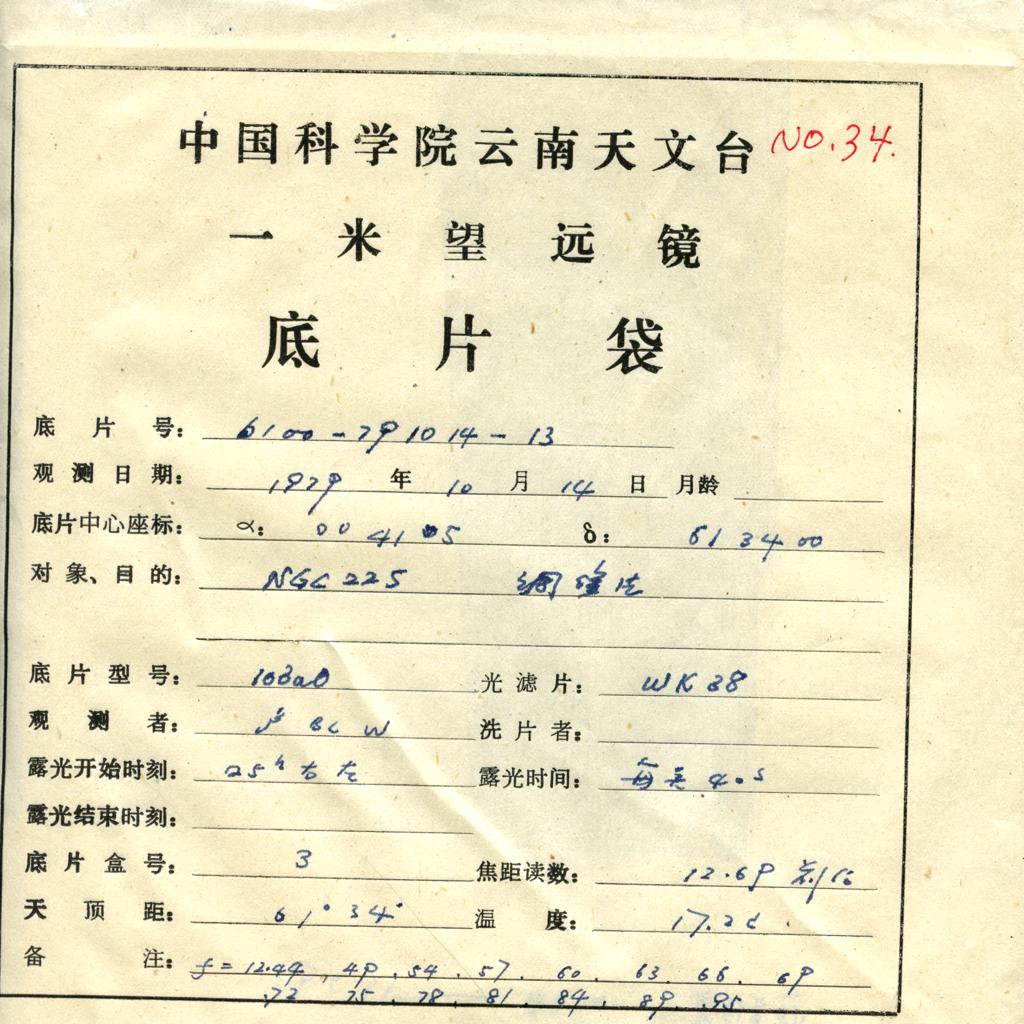 中国科学院云南天文台 NO.34.
一米望远镜
底片袋
底片号: 6100-791014-13
观测日期: 1979 年 10 月 14 日 月龄
底片中心座标: α: 00 41 05 δ: 61 34 00
对象、目的: NGC 225
底片型号: 103aO 光滤片: WK38
观测者: BC W 洗片者:
露光开始时刻: 25h 左右 露光时间: 每 4.5
露光结束时刻:
底片盒号: 3 焦距读数: 12.69
天顶距: 61° 34' 温度: 17.2
备注: f=12.44 , 49 . 54 . 57 . 60 . 63 . 66 . 69
.72 . 75 . 78 . 81 . 84 . 89 . 95